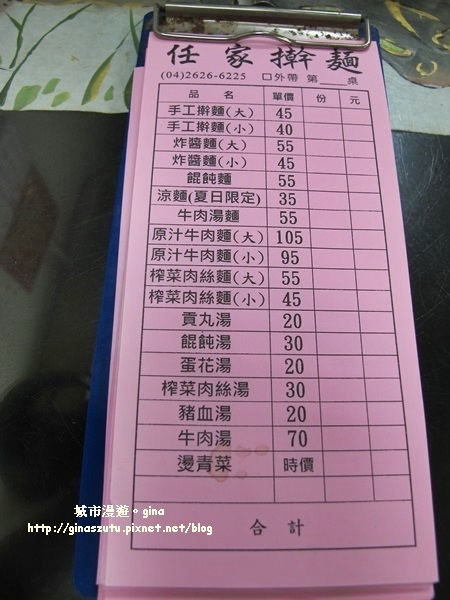 任家擀麵
(04)2626-6225 口外帶 第____桌
品名 單價 份 元
手工擀麵(大) 45
手工擀麵(小) 40
炸醬麵(大) 55
炸醬麵(小) 45
餛飩麵 55
涼麵(夏日限定) 35
牛肉湯麵 55
原汁牛肉麵(大) 105
原汁牛肉麵(小) 95
榨菜肉絲麵(大) 55
榨菜肉絲麵(小) 45
貢丸湯 20
餛飩湯 30
蛋花湯 20
榨菜肉絲湯 30
豬血湯 20
牛肉湯 70
燙青菜 時價
合計
城市漫遊。gina
http://ginaszutu.pixnet.net/blog